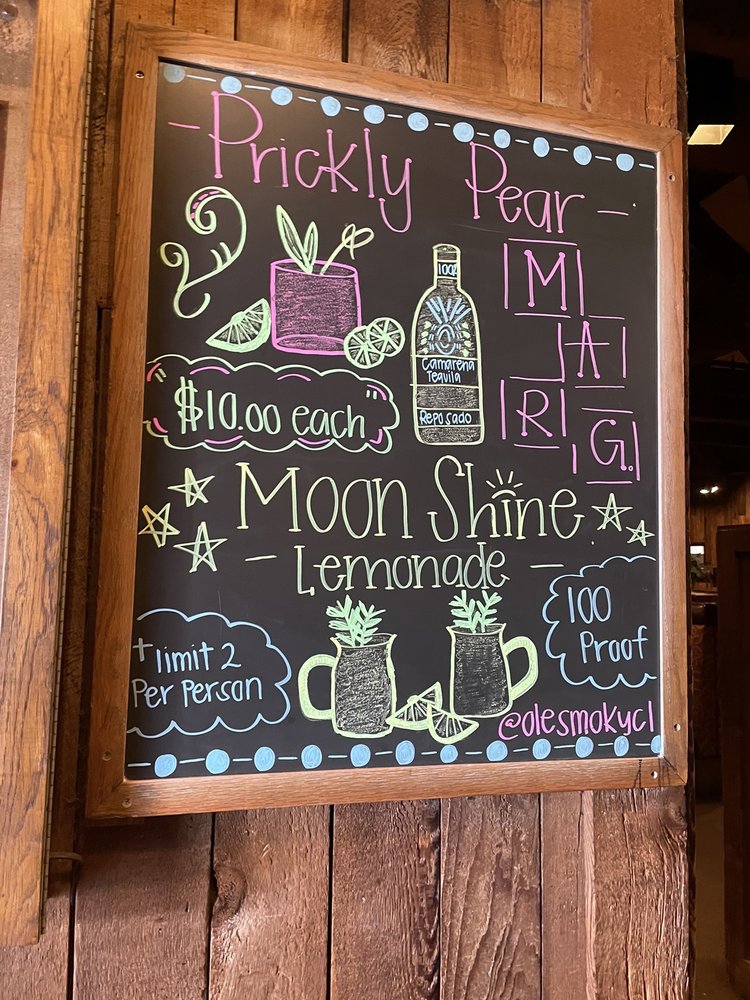 - Prickly Pear -
MARG.
100%
Camarena
Tequila
Reposado
"$10.00 each"
Moon Shine
- Lemonade -
+ limit 2
Per Person
100
Proof
@olesmokycl